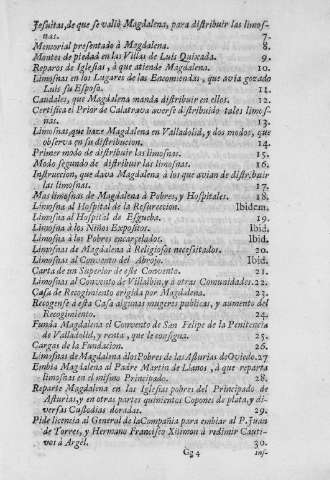 Jesuitas, de que se valiò Magdalena, para distribuir las limos-
nas. 7.
Memorial presentado à Magdalena. 8.
Montes de piedad en las Villas de Luis Quixada. 9.
Reparos de Iglesias, à que atiende Magdalena. 10.
Limosnas en los Lugares de las Encomiendas, que avia gozado
Luis su Esposo. 11.
Caudales, que Magdalena manda distribuir en ellos. 12.
Certifica el Prior de Calatrava averse distribuido tales limos-
nas. 13.
Limosnas, que hace Magdalena en Valladolid, y dos modos, que
observa en su distribucion. 14.
Primer modo de distribuir las limosnas. 15.
Modo segundo de distribuir las limosnas. 16.
Instruccion, que dava Magdalena à los que avian de distribuir
las limosnas. 17.
Mas limosnas de Magdalena à Pobres, y Hospitales. 18.
Limosna al Hospital de la Resurreccion. Ibidem.
Limosna al Hospital de Esgueba. 19.
Limosna à los Niños Expositos. Ibid.
Limosna à los Pobres encarcelados. Ibid.
Limosnas de Magdalena à Religiosos necessitados. 20.
Limosnas al Convento del Abrojo. Ibid.
Carta de un Superior de este Convento. 21.
Limosnas al Convento de Villalbin, y à otras Comunidades. 22.
Casa de Recogimiento erigida por Magdalena. 23.
Recogense à esta Casa algunas mugeres publicas, y aumento del
Recogimiento. 24.
Funda Magdalena el Convento de San Felipe de la Penitencia
de Valladolid, y renta, que le consigna. 25.
Cargas de la Fundacion. 26.
Limosnas de Magdalena à los Pobres de las Asturias de Oviedo. 27
Embia Magdalena al Padre Martin de Llanos, à que reparta
limosnas en el mismo Principado. 28.
Reparte Magdalena en las Iglesias pobres del Principado de
Asturias, y en otras partes quinientos Copones de plata, y di-
versas Custodias doradas. 29.
Pide licencia al General de la Compañia para embiar al P. Juan
de Torres, y Hermano Francisco Xiximon à redimir Cauti-
vos à Argèl. 30.
Gg 4 ins-